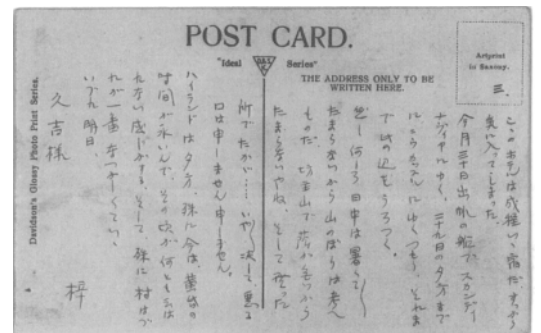 POST CARD.
"Ideal Series"
THE ADDRESS ONLY TO BE WRITTEN HERE.
Artprint in Saxony.
Davidson's Glossy Photo Print Series.
三.
このホテルは成程いゝ宿だ. すっかり
気に入ってしまった.
今月三十日出帆の船で, スカンディ
ナヴィヤにゆく, 二十九日の夕方まで
ニュウカッスルにゆくつもり, それま
で此の辺をうろつく.
然し何しろ日中は暑くて〱
たまらないから山のぼりは考へ
ものだ. 多いから
たまらないやね. そして登った
所でたかい.... いや, 決して悪る
口は申しません申しません.
ハイランドは夕方, 殊に今は, 黄昏の
時間が永いんで, その頃が何とも云は
れない感じがする. そして, 殊に村はづ
れが一番なつかしくていゝ
いづれ明日
久吉様
梓